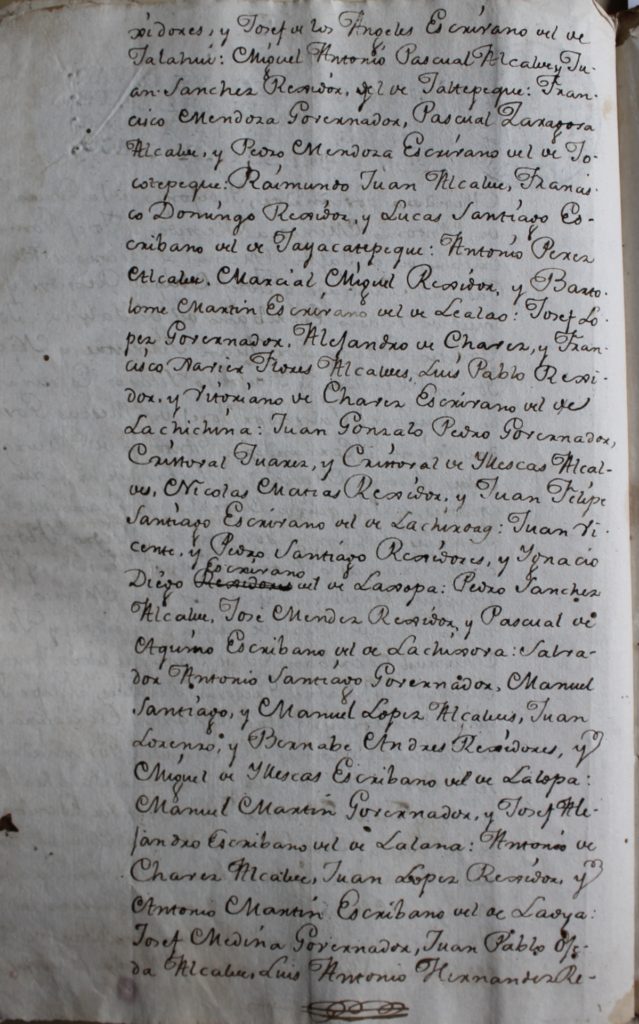 xidores, y Josef de los Angeles Escrivano del de
Talahui: Miguel Antonio Pascual Alcalde, Ju-
an Sanchez Rexidor, del de Taltepeque: Fran-
cisco Mendoza Governador, Pascual Zaragoza
Alcalde, y Pedro Mendoza Escrivano del de Jo-
cotepeque: Raimundo Juan Alcalde, Francis-
co Domingo Rexidor, y Lucas Santiago Es-
cribano del de Jayacatepeque: Antonio Perez
Alcalde, Marcial Miguel Rexidor, y Barto-
lome Martin Escrivano del de Lealao: Josef Lo-
pez Governador, Alejandro de Chavez, y Fran-
cisco Xavier Flores Alcaldes, Luis Pablo Rexi-
dor, y Vitoriano de Chavez Escrivano del de
Lachichina: Juan Gonzalo Pedro Governador,
Cristoval Juarez, y Cristoval de Yllescas Alcal-
des, Nicolas Matias Rexidor, y Juan Felipe
Santiago Escrivano del de Lachixoag: Juan Vi-
cente, y Pedro Santiago Rexidores, y Ygnacio
Escrivano
Diego Rexidores del de Laxopa: Pedro Sanchez
Alcalde, Jose Mendez Rexidor, y Pascual de
Aquino Escribano del de Lachixova: Salva-
dor Antonio Santiago Governador, Manuel
Santiago, y Manuel Lopez Alcaldes, Juan
Lorenzo, y Bernabe Andres Rexidores, y
Miguel de Yllescas Escribano del de Latopa:
Manuel Martin Governador, y Josef Ale-
jandro Escribano del de Lalana: Antonio de
Chavez Alcalde, Juan Lopez Rexidor, y
Antonio Martin Escribano del de
Josef Medina Governador, Juan Pablo Oje-
da Alcalde, Luis Antonio Hernandez Re-